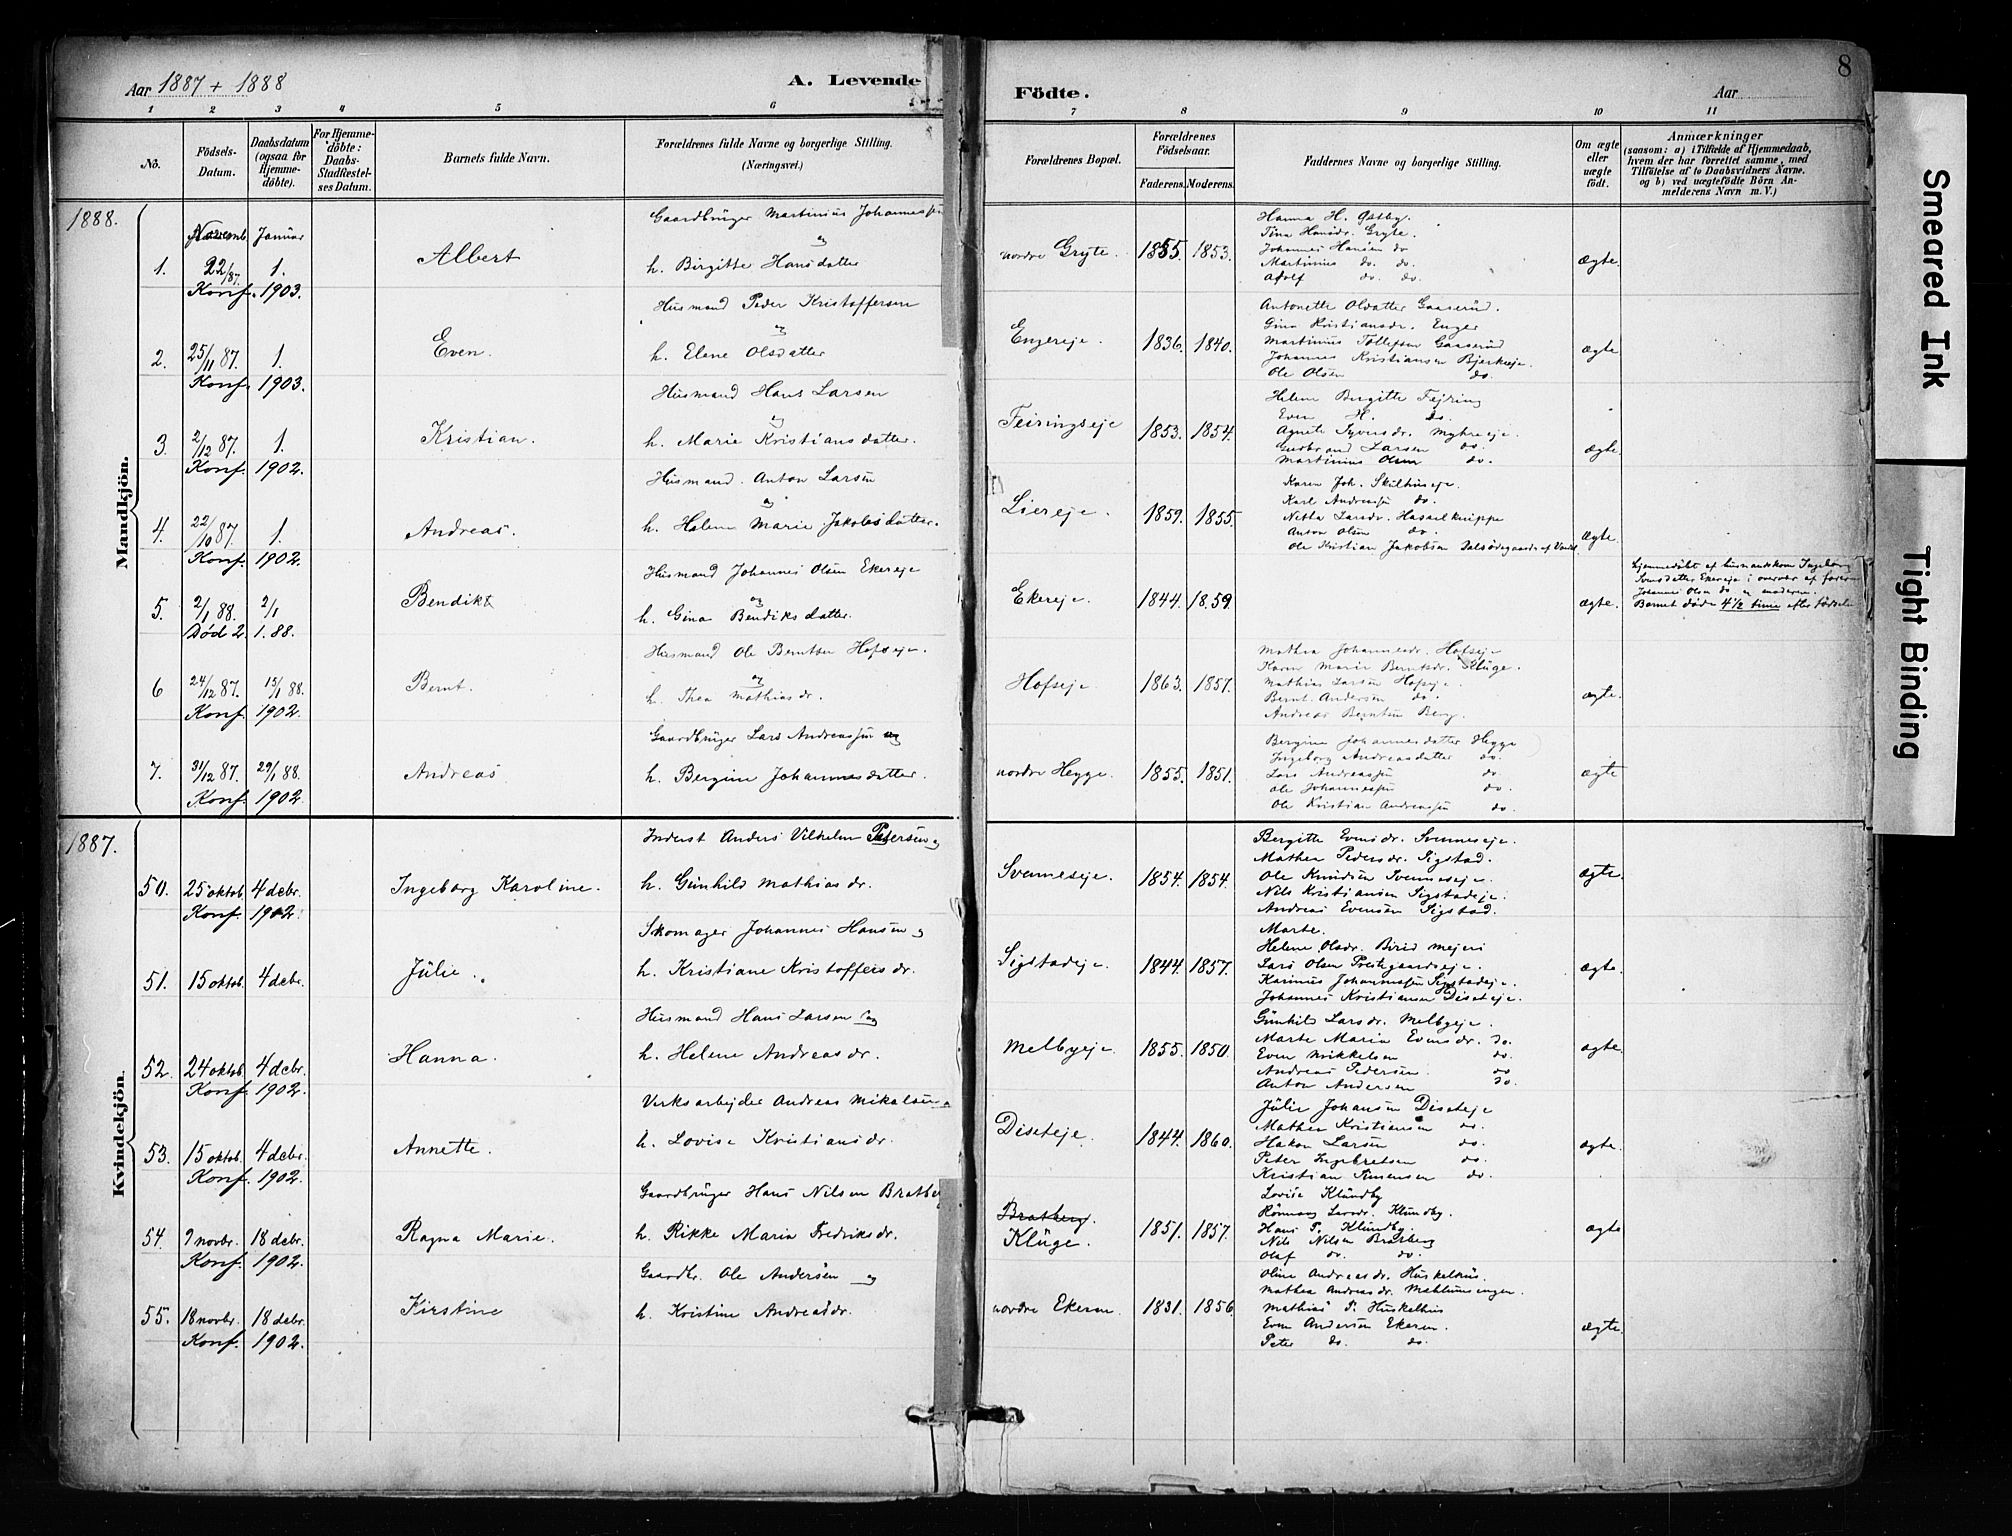 8
Aar 1887 + 1888
A. Levende
Födte.
Aar
1 2 3 4 5 6
7 8 9 10 11
No.
Födsels-
Datum.
Daabsdatum
(ogsaa for
Hjemme-
döbte).
For Hjemme-
döbte:
Daabs-
Stadfæstel-
ses Datum.
Barnets fulde Navn.
Forældrenes fulde Navne og borgerlige Stilling.
(Næringsvei.)
Forældrenes Bopæl.
Forældrenes
Födselsaar.
Faderens. Moderens.
Faddernes Navne og borgerlige Stilling.
Om ægte
eller
uægte
födt.
Anmærkninger
(saasom: a) i Tilfælde af Hjemmedaab,
hvem der har forrettet samme, med
Tilföielse af to Daabsvidners Navne.
og b) ved uægtefödte Börn An-
melderens Navn m. V.)
1888.
Mandkjön.
Novemb. Januar
1. 22/87. 1.
Konf. 1903.
Albert
Gaardbrüger Martinius Johannessen
og
h. Birgitte Hansdatter
nordre Gryte. 1855. 1853.
Hanna H. Østby.
Tina Hansdr. Gryte.
Johannes Hansen do
Martinius do. do.
Adolf do. do.
ægte.
2. 25/11 87. 1.
Konf. 1903.
Even.
Husmand Peder Kristoffersen
og
h. Elene Olsdatter
Engereje. 1836. 1840.
Antonette Olsdatter Gaaserüd.
Gina Kristiansdr. Enger
Martinius Tollefsen Gaaserüd
Johannes Kristiansen Bjerkeeje.
Ole Olsen do.
ægte
3. 2/12 87. 1.
Konf. 1902.
Kristian.
Husmand Hans Larsen
og
h. Marie Kristiansdatter.
Feiringseje 1853. 1854.
Helene Birgitte Fejring
Even H. do.
Agnete Syversdr. Myhreeje.
Gudbrand Larsen do.
Martinius Olsen do.
ægte.
4. 22/10 87. 1.
Konf. 1902.
Andreas.
Husmand. Anton Larsen
og
h. Helene Marie Jakobsdatter.
Liereje. 1859. 1855.
Karen Joh. Skilhuseje.
Karl Andreassen do.
Netta Larsdr. Hasselknippe
Anton Olsen do.
Ole Kristian Jakobsen Dalsødegaarden af Vardal
ægte.
5. 2/1 88. 2/1
Död 2. 1. 88.
Bendikt
Husmand Johannes Olsen Ekereje
og
h. Gina Bendiksdatter.
Ekereje. 1844. 1859.
ægte.
Hjemmedøbt af husmandskone Ingeborg
Svensdatter Ekereje i overvær af faderen
Johannes Olsen do. og moderen.
Barnet døde 4½ time efter fødselen
6 24/12 87. 15/1 88.
Konf. 1902.
Bernt.
Husmand Ole Berntsen Hofseje.
og
h. Thea Mathiasdr.
Hofseje. 1863. 1857.
Mathea Johannesdr. Hofseje
Karen Marie Berntsdr. Klüge.
Mathias Larsen Hofseje.
Bernt Andersen do.
Andreas Berntsen Berg.
ægte.
7. 31/12 87. 29/1 88.
Konf. 1902.
Andreas
Gaardbrüger Lars Andreassen og
h. Bergine Johannesdatter.
nordre Hegge. 1855. 1851.
Bergine Johannesdatter Hegge
Ingeborg Andreasdatter do.
Lars Andreassen do.
Ole Johannessen do.
Ole Kristian Andreassen do.
ægte
1887.
Kvindekjön.
50. 25 oktob. 4 debr.
Konf. 1902.
Ingeborg Karoline.
Inderst Anders Vilhelm Petersen og
h. Günhild Mathiasdr.
Svenneseje. 1854. 1854.
Bergitte Evensdr. Svenneseje.
Mathea Pedersdr. Sigstad.
Ole Knudsen Svenneseje.
Nils Kristiansen Sigstadeje.
Andreas Evensen Sigstad.
ægte.
51. 15 oktob. 4 debr.
Jülie.
Skomager Johannes Hansen og
h. Kristiane Kristoffersdr.
Sigstadeje. 1844. 1857.
Marte.
Helene Olsdr. Birid Mejeri
Lars Olsen Prestegaardseje.
Karinus Johannessen Sigstadeje.
Johannes Kristiansen Diseteje.
ægte.
52. 24 oktob. 4 debr.
Konf. 1902.
Hanna.
Husmand Hans Larsen og
h. Helene Andreasdr.
Melbyeje. 1855. 1850.
Günhild Larsdr. Melbyeje.
Marte Maria Evensdr. do.
Even Mikkelsen do.
Andreas Pedersen do
Anton Andersen do.
ægte.
53. 15 oktob. 4 debr.
Konf. 1902.
Annette.
Verksarbejder Andreas Mikalsen og
h. Lovise Kristiansdr.
Diseteje. 1844. 1860.
Jülie Johansen Diseteje
Mathea Kristiansen do.
Hakon Larsen do.
Peter Ingebretsen do.
Kristian Simensen do.
ægte.
54. 9 novbr. 18 debr.
Konf. 1902.
Ragna Marie.
Gaardbrüger Hans Nilsen Bratberg
h. Rikke Maria Fredriksdr.
Bratberg.
Klüge. 1851. 1857.
Lovise Klündby
Rønnaug Larsdr. Klundby.
Hans P. Klündby.
Nils Nilsen Bratberg
Olaf do. do.
ægte
55. 18 novbr. 18 debr.
Konf. 1902.
Kirstine
Gaardbr. Ole Andersen og
h. Kristine Andreasdr.
nordre Ekeren. 1831. 1856
Oline Andreasdr. Huskelhus.
Mathea Andreasdr. Mæhlumsengen.
Mathias P. Huskelhus
Even Andersen Ekeren.
Peter do. do.
ægte.
Smeared Ink
Tight Binding